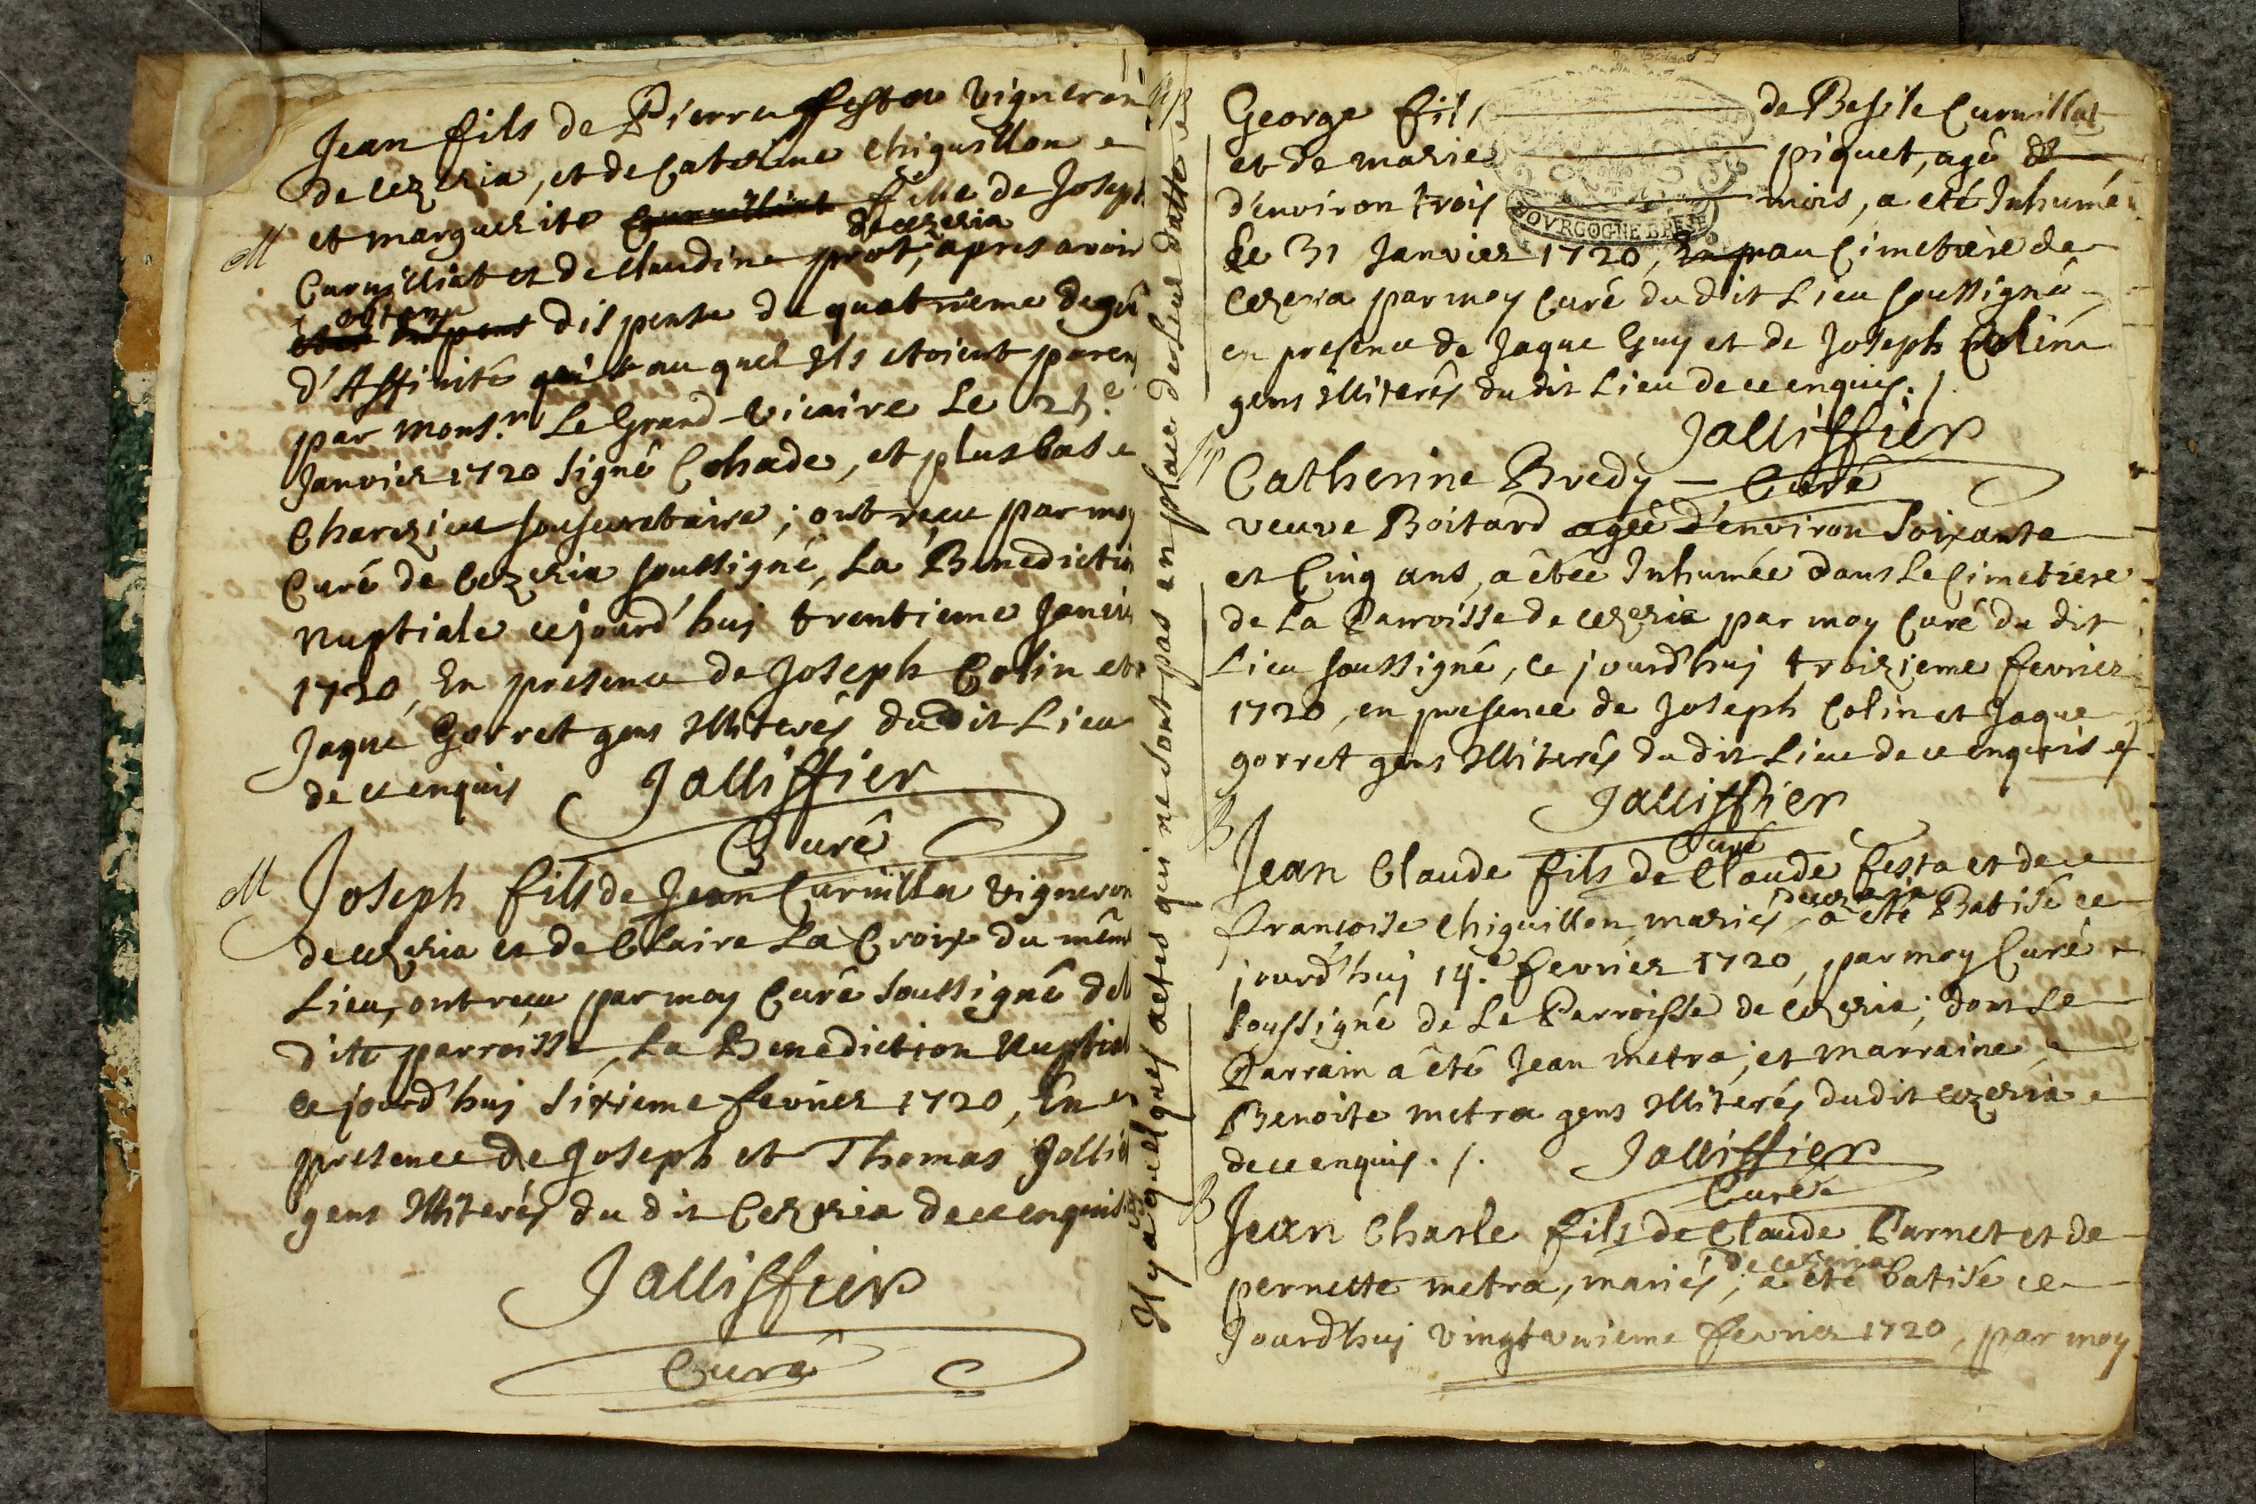 M
Jean fils de Pierre festa vigneron
de cezeria, et de Caterine Chiguillon
et marguerite Curnilliat fille de Joseph
Curnilliat et de Claudine prost, de cezeria apres avoir
obtenu dispense du quatrieme degré
d'Affinité qui auquel Ils etoient parens
par Mons.r Le Grand-Vicaire Le
Janvier 1720 signé Cohade, et plus bas
Charezieu sousecretaire; ont reçu par moy
Curé de Cezeria soussigné, La Benediction
Nuptiale cejourd'huy trentieme Janvier
1720, En presence de Joseph Colin et
Jaque Gorret gens Illiterés du dit Lieu
de ce enquis Jalliffier
Curé
M
Joseph fils de Jean Curnilla vigneron
de cezeria et de Claire La Croix du même
Lieu, ont reçu par moy Curé soussigné de la
d'ite parroisse, La Benediction Nuptiale
ce jourd'huy sixieme fevrier 1720, En
presence de Joseph et Thomas
gens Illiterés du dit Cezeria de ce enquis
Jalliffier
Curé
Il y a quelques actes qui ne sont pas en place de leur datte
George fils de Besile Curnillat
et de marie piquet, agé de
d'environ trois mois, a eté Inhumé
BOVRGOGNE BRESSE
Le 31 Janvier 1720, au Cimetiere de
Cezeria par moy Curé du dit Lieu soussigné
en presence de Jaque Guy et de Joseph Colin
gens Illiterés du dit Lieu de ce enquis./.
Jalliffier
Curé
Catherine Bredy
veuve Boitard agée d'environ soixante
et Cinq ans, a êtée Inhumée dans Le Cimetiere
de La Parroisse de cezeria par moy Curé du dit
Lieu soussigné, ce jourd'huy troizieme fevrier
1720, en presence de Joseph Colin et Jaque
gorret gens Illiterés du dit Lieu de ce enquis
Jalliffier
Curé
B
Jean Claude fils de Claude festa et de
françoise Chiguillon, mariés de cezeria a êté Batisé ce
jourd'huy 14.e fevrier 1720, par moy Curé
soussigné de La Parroisse de Cezeria; dont Le
Parrain a êté Jean metra; et marraine
Benoite metra gens Illiterés dudit cezeria
de ce enquis./. Jalliffier
Curé
B
Jean Charle fils de Claude Parnet et de
pernette metra, mariés, de cezeria a êté batisé ce
Jourd'huy vingtunieme fevrier 1720, par moy